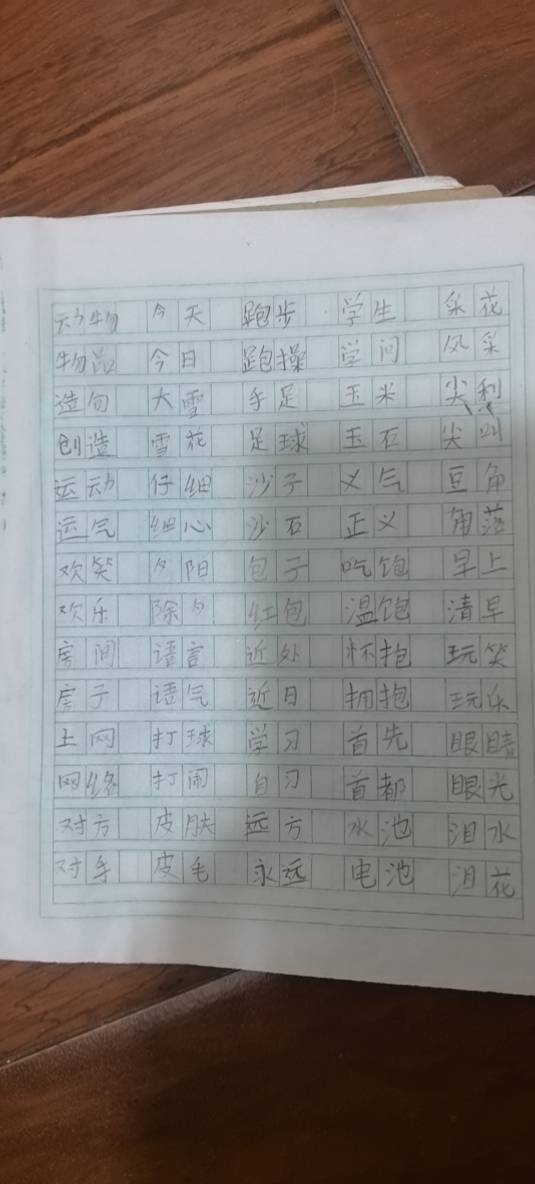 动物 今天 跑步 学生 采花
物品 今日 跑操 学问 风采
造句 大雪 手足 玉米 尖利
创造 雪花 足球 玉石 尖叫
运动 仔细 沙子 义气 豆角
运气 细心 沙石 正义 角落
欢笑 夕阳 包子 吃饱 早上
欢乐 除夕 红包 温饱 清早
房间 语言 近处 怀抱 玩笑
房子 语气 近日 拥抱 玩乐
上网 打球 学习 首先 眼睛
网络 打闹 自习 首都 眼光
对方 皮肤 远方 水池 泪水
对手 皮毛 永远 电池 泪花